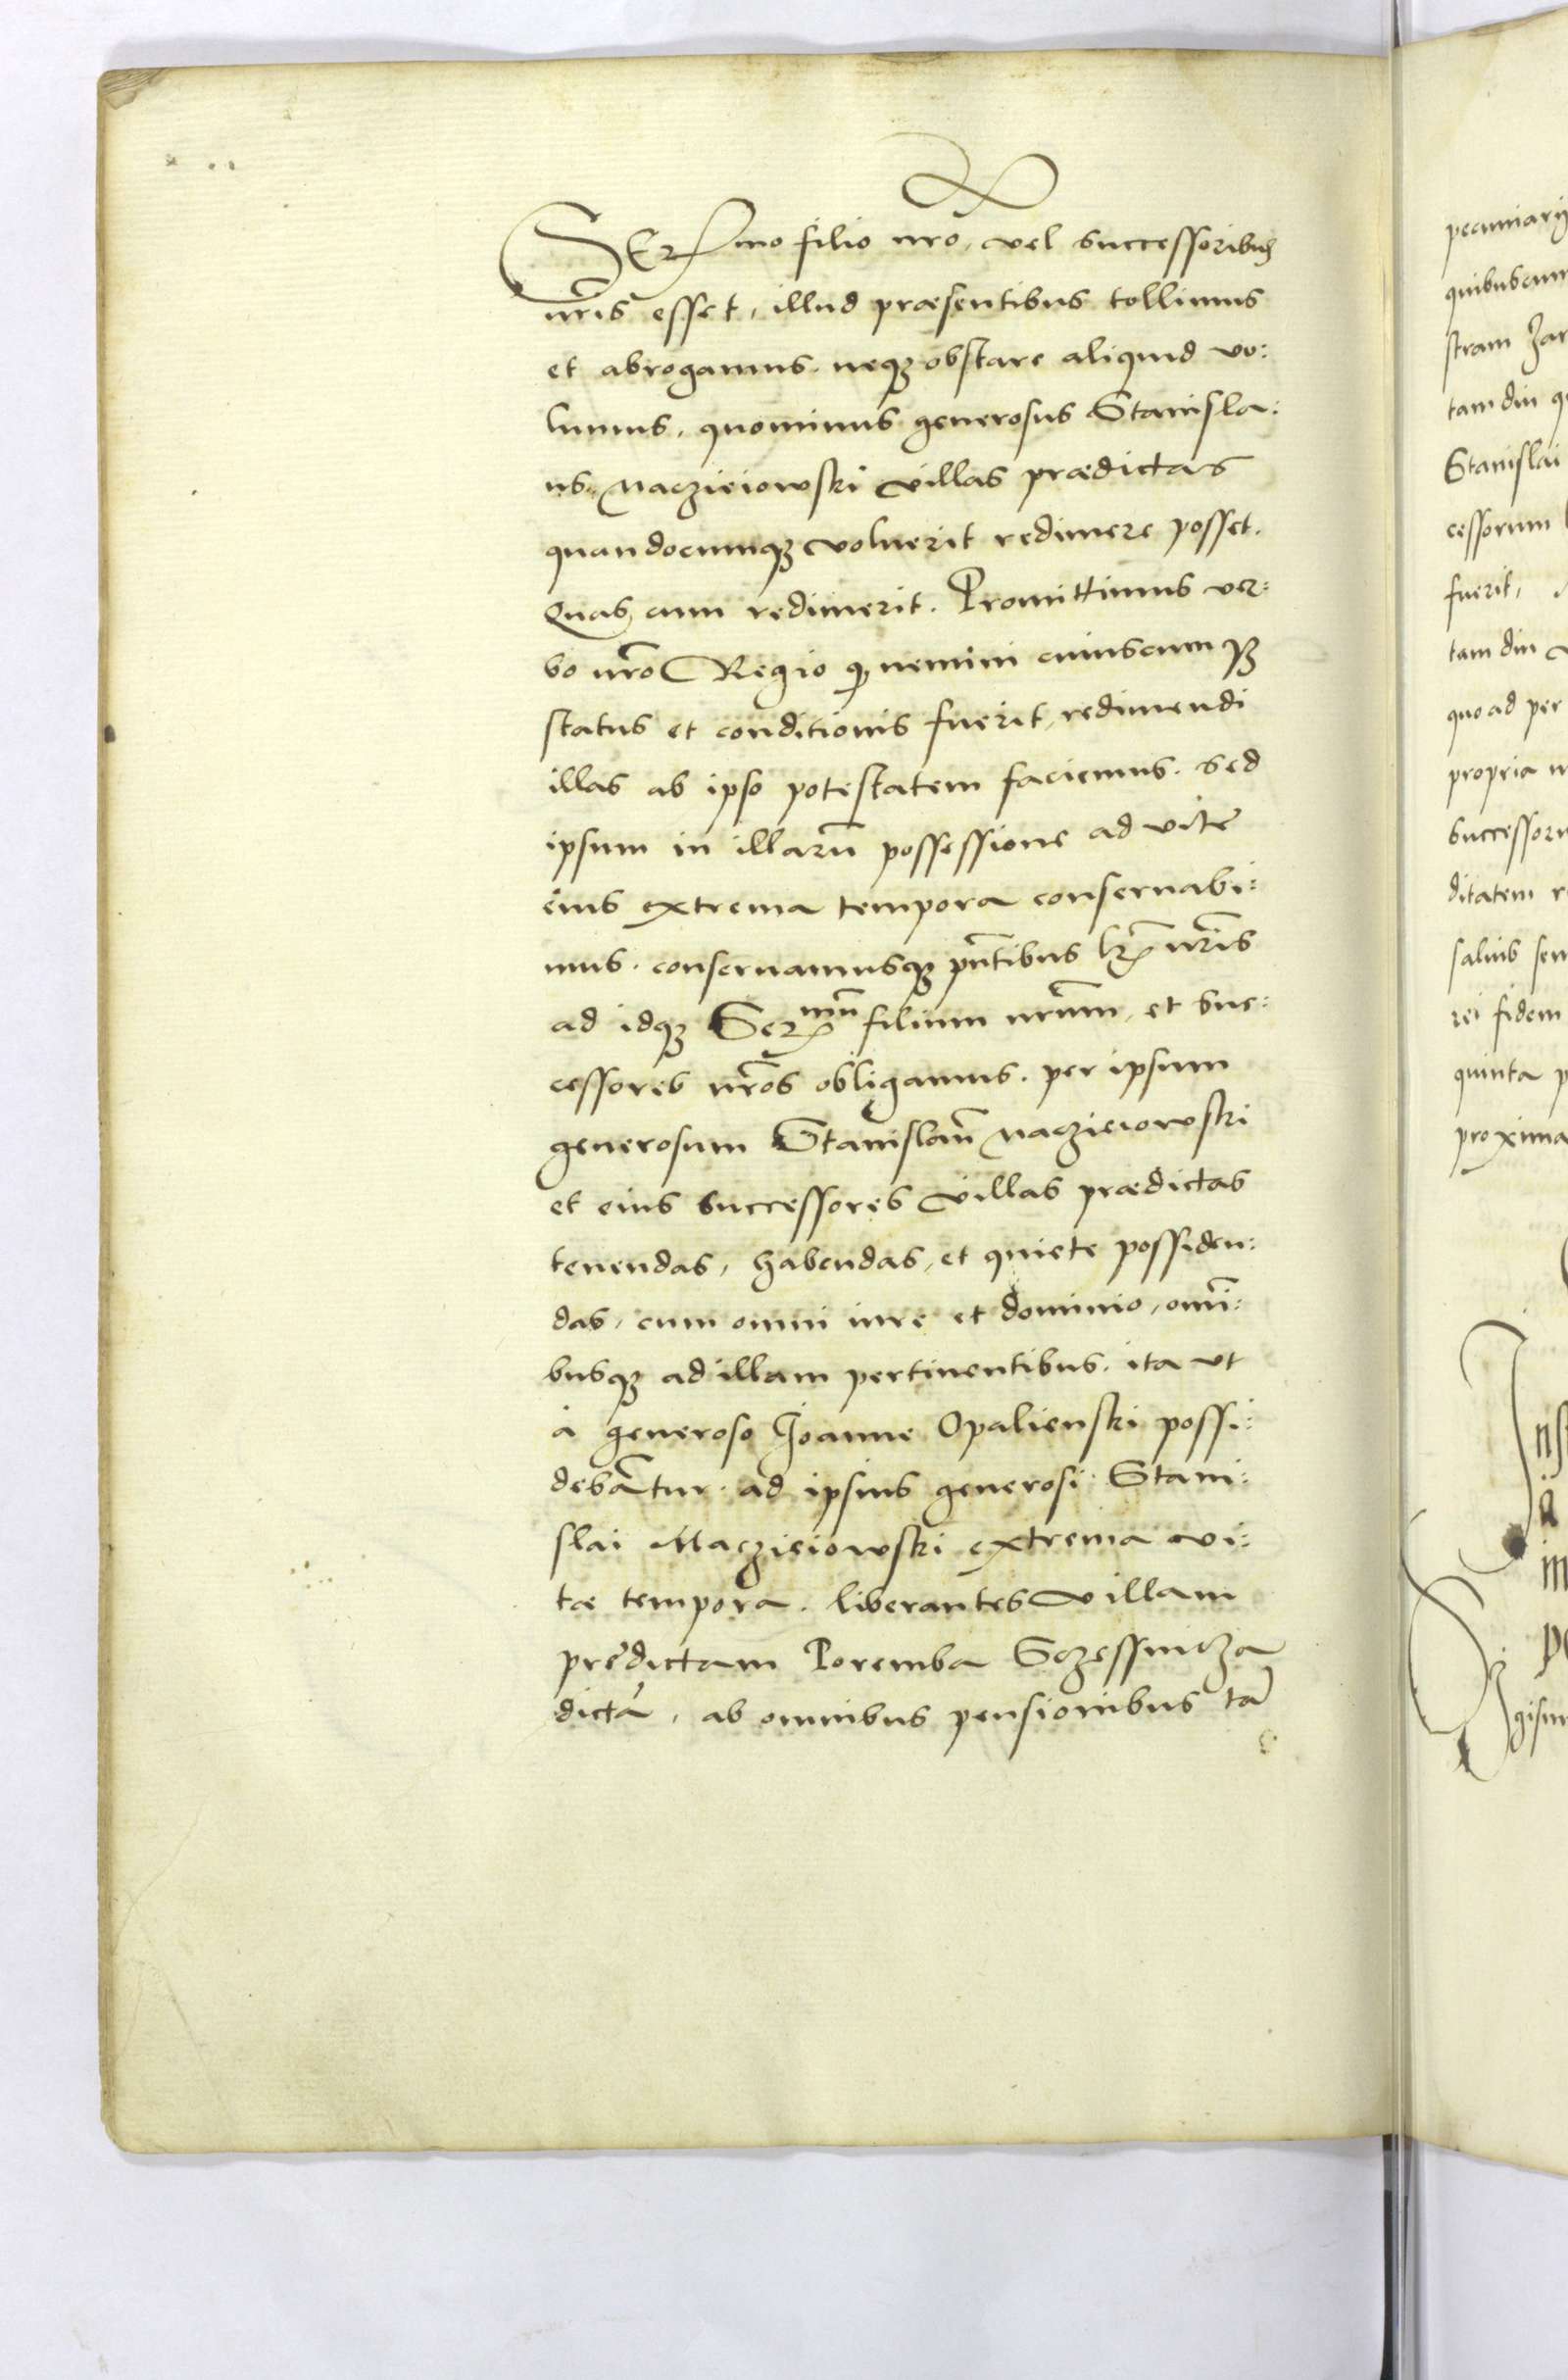 SERmo filio nro, vel successoribus
nris esset, illud præsentibus tollimus
et abrogamus. neq; obstare aliquid vo:
lumus, quominus generosus Stanisla:
us Macziеiowski villas prædictas
quandocumq; voluerit redimere posset.
Quas cum redimerit. Promittimus ver:
bo nro Regio q nemini cuiuscumq;
status et conditionis fuerit, redimendi
illas ab ipso potestatem faciemus. sed
ipsum in illarū possessione ad vite
eius extrema tempora conservabi:
mus. conservamusq; pntibus lris nris
ad idq; Sermū filium nrum, et suc:
cessores nros obligamus. per ipsum
generosum Stanislaū Maczieiowski
et eius successores villas prædictas
tenendas, habendas, et quiete possiden:
das, cum omni iure et dominio, omi:
busq; ad illam pertinentibus. ita ut
à generoso Joanne Opalienski possi:
debātur. ad ipsius generosi Stani:
slai Maczieiowski extrema vi:
tæ tempora. liberantes villam
predictam Poremba Sczessnicza
dictā, ab omnibus pensionibus tā
pecuniarij
quibuscum
stram
tam diu
Stanislai
cessorum
fuerit,
tam diu
quo ad per
propria
successoru
ditatem
salvis
rei fidem
quinta
proxima